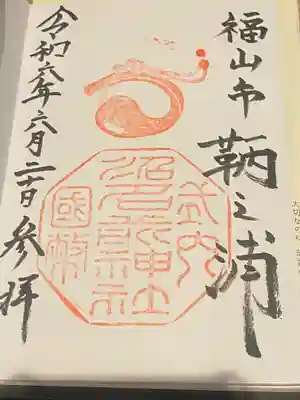 福山市
鞆之浦
式内
沼名前神社
國幣
令和六年六月二十日
参拝